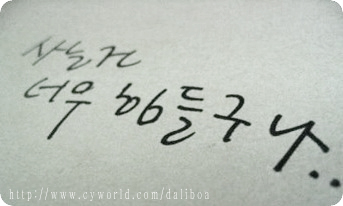 사는건
너무 힘들구나..
http://www.cyworld.com/daliboa